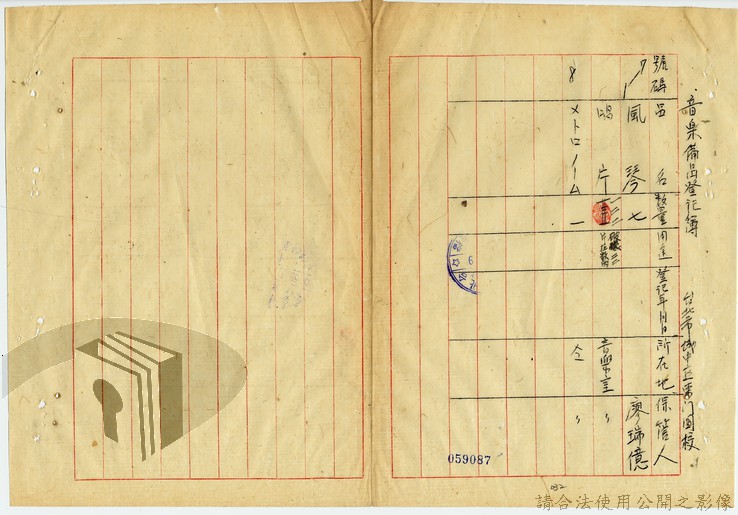 音樂備品登記簿 台北市城中区東门国校
號碼 品名 数量 用途 登記年月日 所在地 保管人
1〜7 風琴 七 廖瑞億
唱片 音樂室 〃
8 メトロノーム 一 仝 〃
059087
請合法使用公開之影像